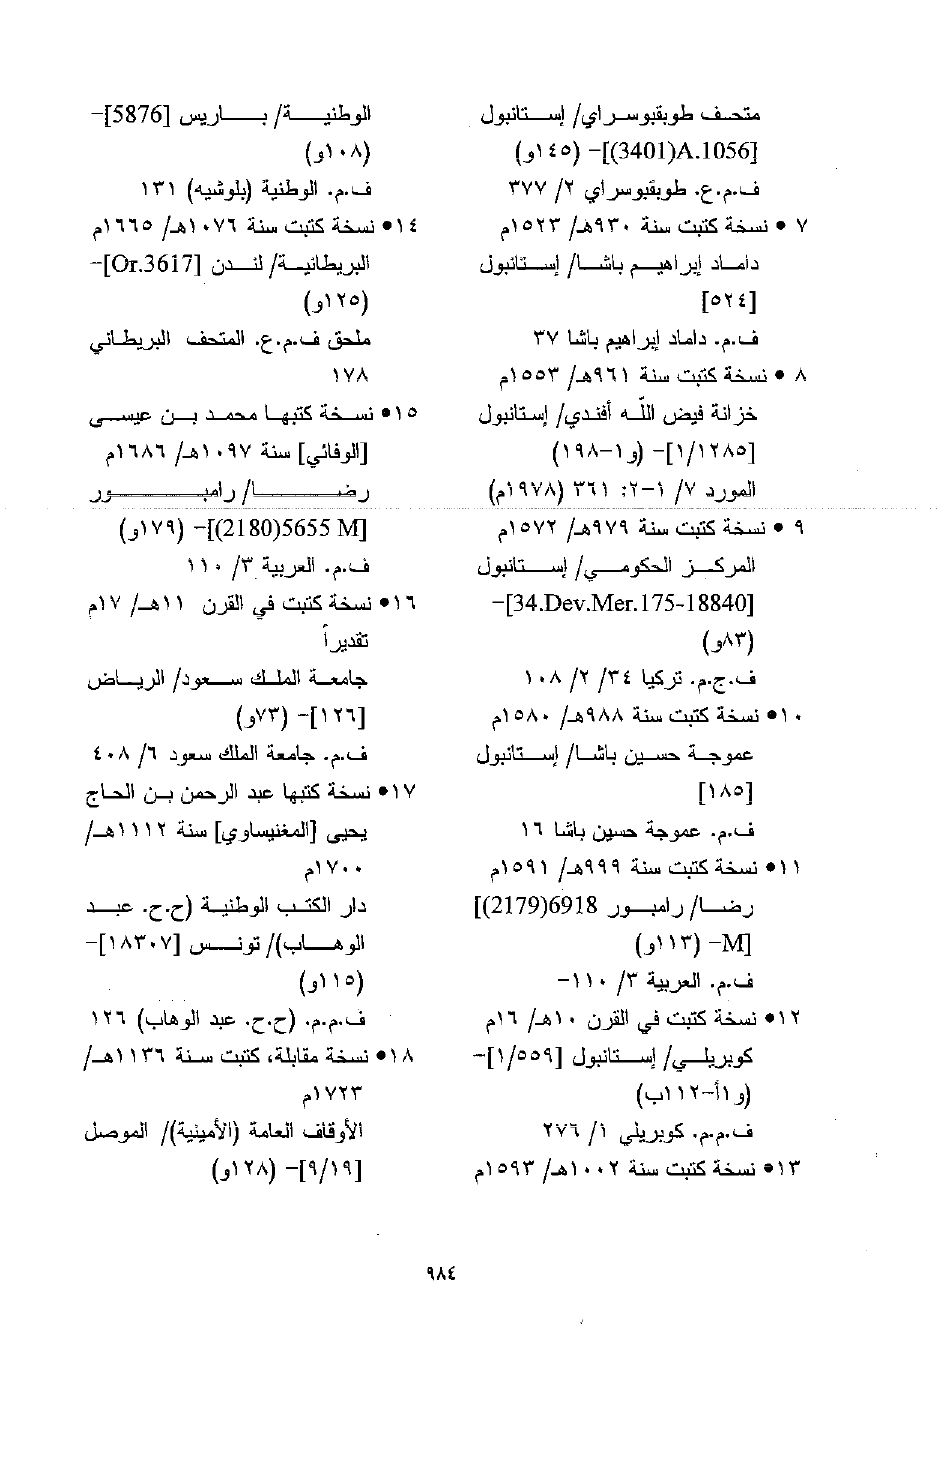 متحف طوبقبوسراي/ إستانبول
[A.1056(3401)]- (١٤٥و)
ف.م.ع. طوبقبوسراي ٢/ ٣٧٧
٧ • نسخة كتبت سنة ٩٣٠هـ/ ١٥٢٣م
داماد إبراهيم باشا/ إستانبول
[٥٢٤]
ف.م. داماد إبراهيم باشا ٣٧
٨ • نسخة كتبت سنة ٩٦١هـ/ ١٥٥٣م
خزانة فيض اللّه أفندي/ إستانبول
[١/١٢٨٥]- (و١-١٩٨)
المورد ٧/ ١-٢: ٣٦١ (١٩٧٨م)
٩ • نسخة كتبت سنة ٩٧٩هـ/ ١٥٧٢م
المركز الحكومي/ إستانبول
[34.Dev.Mer.175-18840]-
(٨٣و)
ف.ج.م. تركيا ٣٤/ ٢/ ١٠٨
١٠• نسخة كتبت سنة ٩٨٨هـ/ ١٥٨٠م
عموجة حسين باشا/ إستانبول
[١٨٥]
ف.م. عموجة حسين باشا ١٦
١١• نسخة كتبت سنة ٩٩٩هـ/ ١٥٩١م
رضا/ رامبور 6918(2179)]
[M- (١١٣و)
ف.م. العربية ٣/ ١١٠-
١٢• نسخة كتبت في القرن ١٠هـ/ ١٦م
كوبريلي/ إستانبول [١/٥٥٩]-
(و١أ-١١٢ب)
ف.م.م. كوبريلي ١/ ٢٧٦
١٣• نسخة كتبت سنة ١٠٠٢هـ/ ١٥٩٣م
الوطنية/ باريس [5876]-
(١٠٨و)
ف.م. الوطنية (بلوشيه) ١٣١
١٤• نسخة كتبت سنة ١٠٧٦هـ/ ١٦٦٥م
البريطانية/ لندن [Or.3617]-
(١٢٥و)
ملحق ف.م.ع. المتحف البريطاني
١٧٨
١٥• نسخة كتبها محمد بن عيسى
[الوفائي] سنة ١٠٩٧هـ/ ١٦٨٦م
رضا/ رامبور
[M 5655(2180)]- (١٧٩و)
ف.م. العربية ٣/ ١١٠
١٦• نسخة كتبت في القرن ١١هـ/ ١٧م
تقديراً
جامعة الملك سعود/ الرياض
[١٢٦]- (٧٣و)
ف.م. جامعة الملك سعود ٦/ ٤٠٨
١٧• نسخة كتبها عبد الرحمن بن الحاج
يحيى [المغنيساوي] سنة ١١١٢هـ/
١٧٠٠م
دار الكتب الوطنية (ح.ح. عبد
الوهاب)/ تونس [١٨٣٠٧]-
(١١٥و)
ف.م.م. (ح.ح. عبد الوهاب) ١٢٦
١٨• نسخة مقابلة، كتبت سنة ١١٣٦هـ/
١٧٢٣م
الأوقاف العامة (الأمينية)/ الموصل
[٩/١٩]- (١٢٨و)
٩٨٤